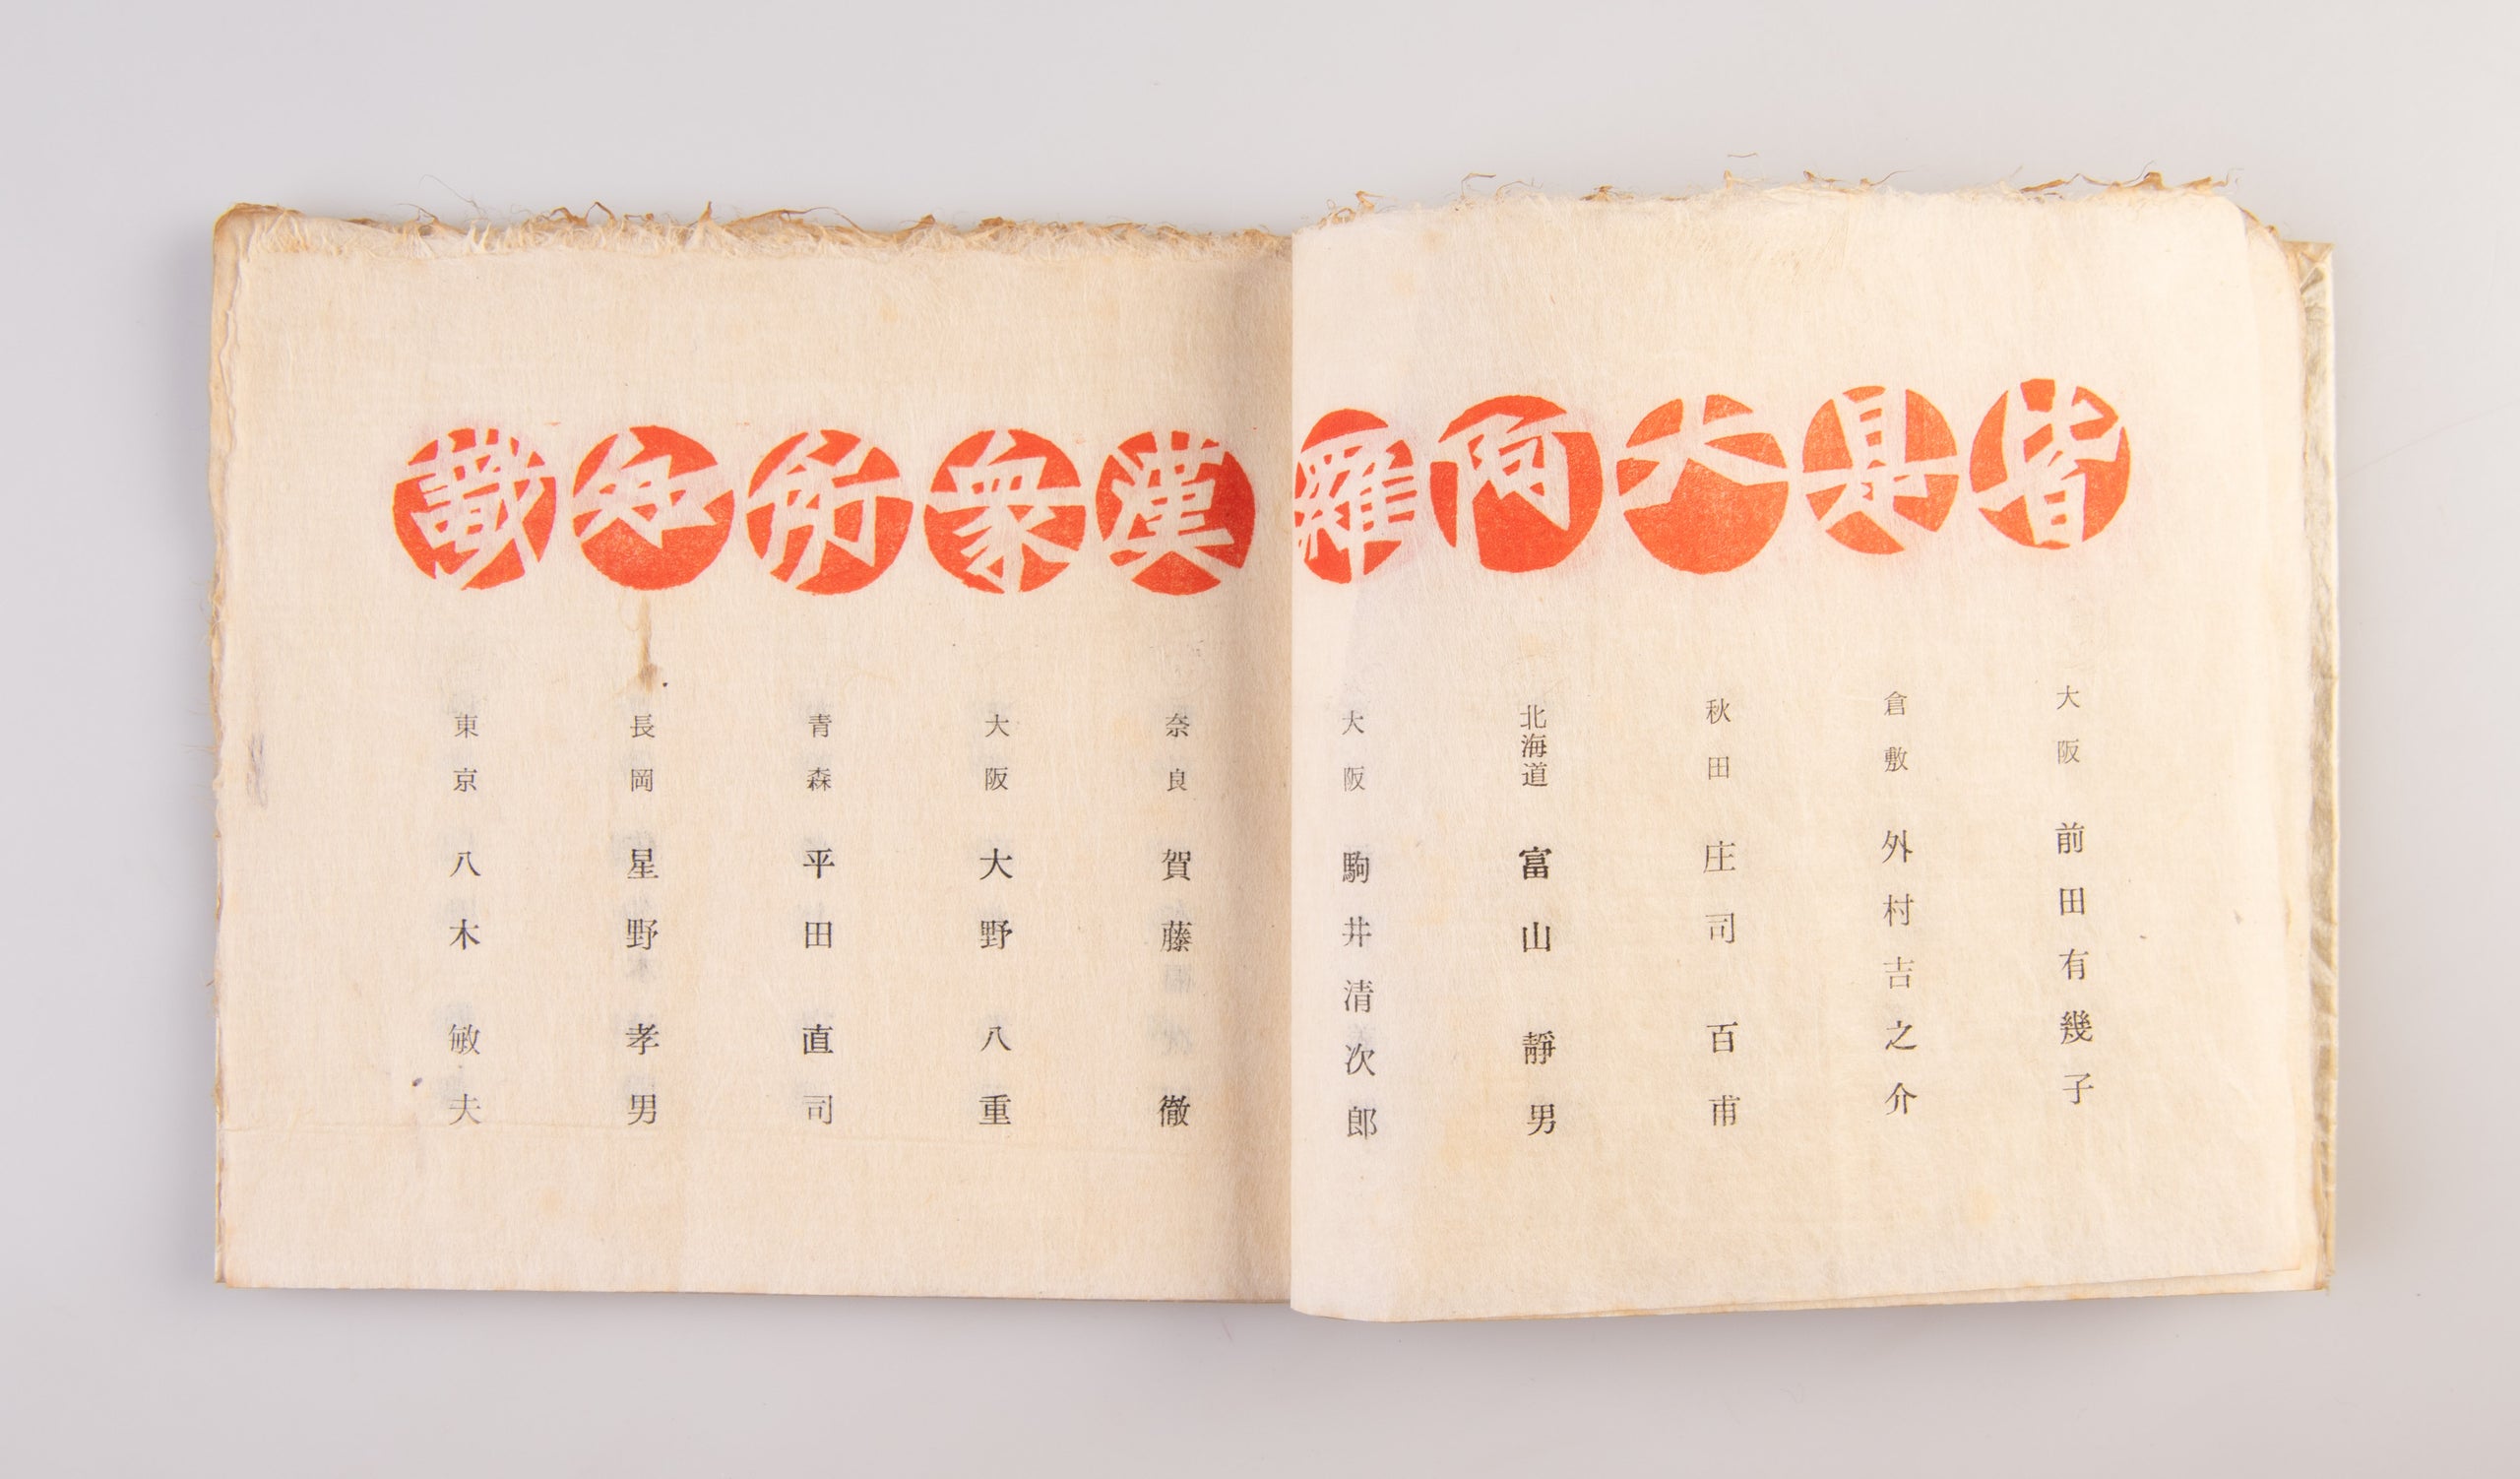 皆是大阿羅漢衆所知識
大阪 前田有幾子
倉敷 外村吉之介
秋田 庄司百甫
北海道 富山靜男
大阪 駒井清次郎
奈良 賀藤徹
大阪 大野八重
青森 平田直司
長岡 星野孝男
東京 八木敏夫